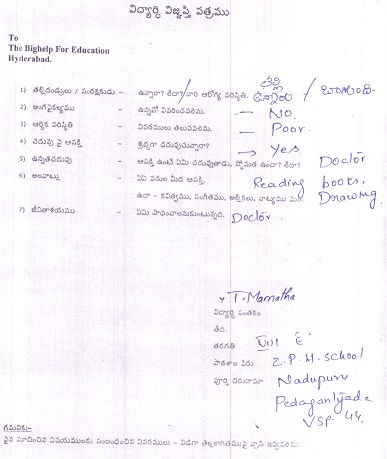 విద్యార్థి విజ్ఞప్తి పత్రము
To
The Bighelp For Education
Hyderabad.
తల్లి
1) తల్లిదండ్రులు / సంరక్షకుడు - ఉన్నారా? లేదా? వారి ఆరోగ్య పరిస్థితి. ఉన్నారు / బాగుంది.
2) అంగవైకల్యము - ఉన్నచో వివరించవలెను. — No.
3) ఆర్థిక పరిస్థితి - వివరములు తెలుపవలెను. — Poor.
4) చదువు పై ఆసక్తి - శ్రద్ధగా చదువుచున్నారా? → Yes
5) ఉన్నతచదువు - ఆసక్తి ఉంటే ఏమి చదువుతాడు, స్థోమత ఉందా? లేదా? Doctor
6) అలవాట్లు - ఏఏ పనుల మీద ఆసక్తి. Reading books,
ఉదా - కవిత్వము, సంగీతము, అల్లికలు, నాట్యము Drawing.
7) జీవితాశయము - ఏమి సాధించాలనుకుంటున్నది. Doctor.
T. Mamatha
విద్యార్థి సంతకం
తేది.
తరగతి VIII 'E'
పాఠశాల పేరు Z.P.H. school
పూర్తి చిరునామా Nadupuru
Pedagantyada
VSP-44.
గమనిక:-
పైన సూచించిన విషయములకు సంబంధించిన వివరములు - విడిగా తెల్లకాగితముపై వ్రాసి ఇవ్వవలెను.